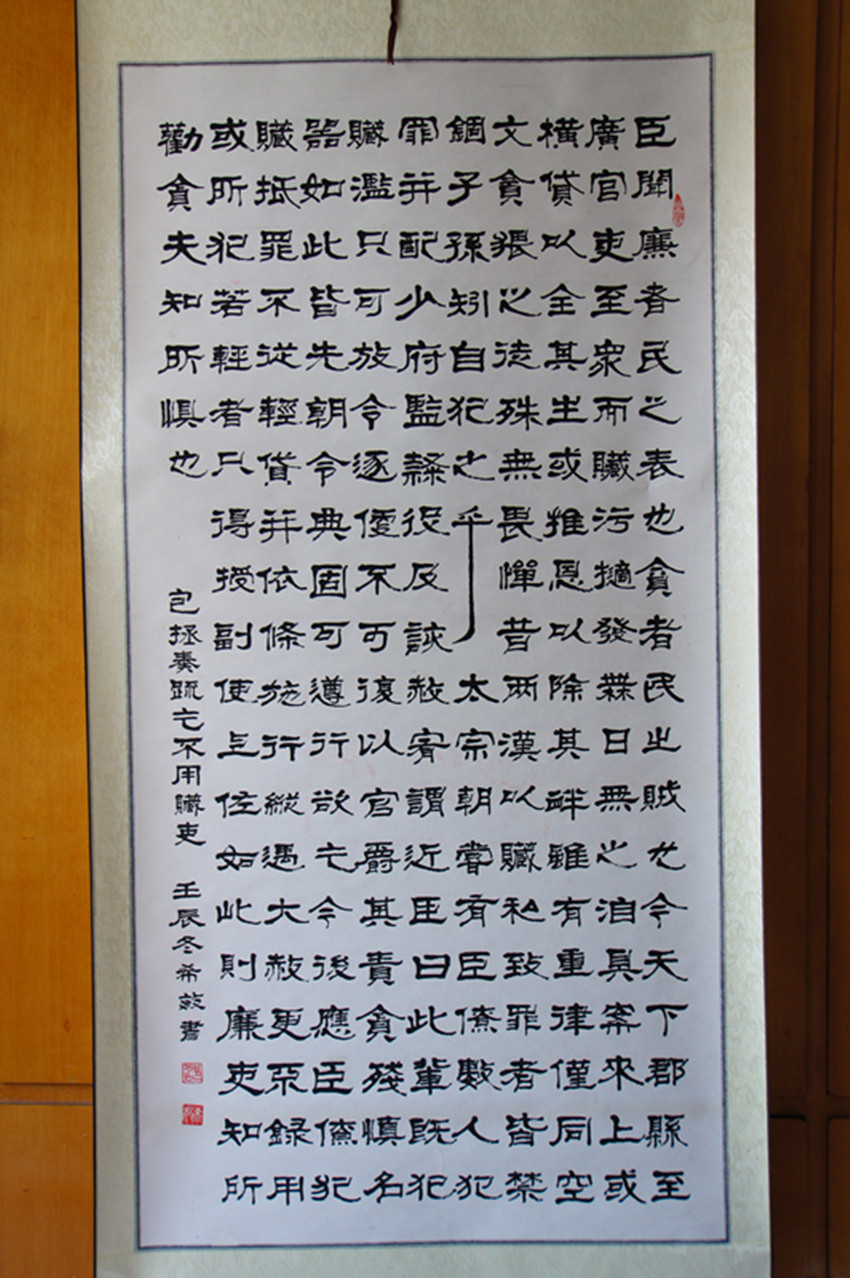 臣聞廉者民之表也貪者民之賊也今天下郡縣至
廣官吏至衆而贓污擿發無日無之洎具案來上或
橫貸以全其生或推恩以除其衅雖有重律僅同空
文貪猥之徒殊無畏憚昔兩漢以贓私致罪者皆禁
錮子孫矧自犯之乎太宗朝嘗有臣僚數人犯
罪并配少府監隸役及該赦宥謂近臣曰此輩既犯
贓濫只可放令逐便不可復以官爵其責貪殘慎名
器如此皆先朝令典固可遵行欲乞今後應臣僚犯
贓抵罪不從輕貸并依條施行縱遇大赦更不錄用
或所犯若輕者只得授副使上佐如此則廉吏知所
勸貪夫知所惧也
包拯奏疏乞不用贓吏 壬辰冬希書